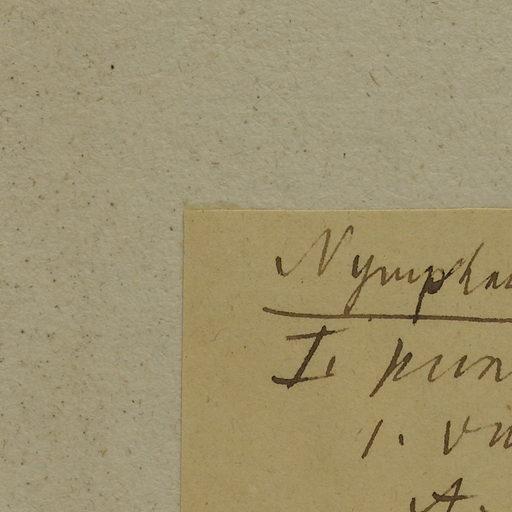 Nymphae
I. pun
1. vu
A.